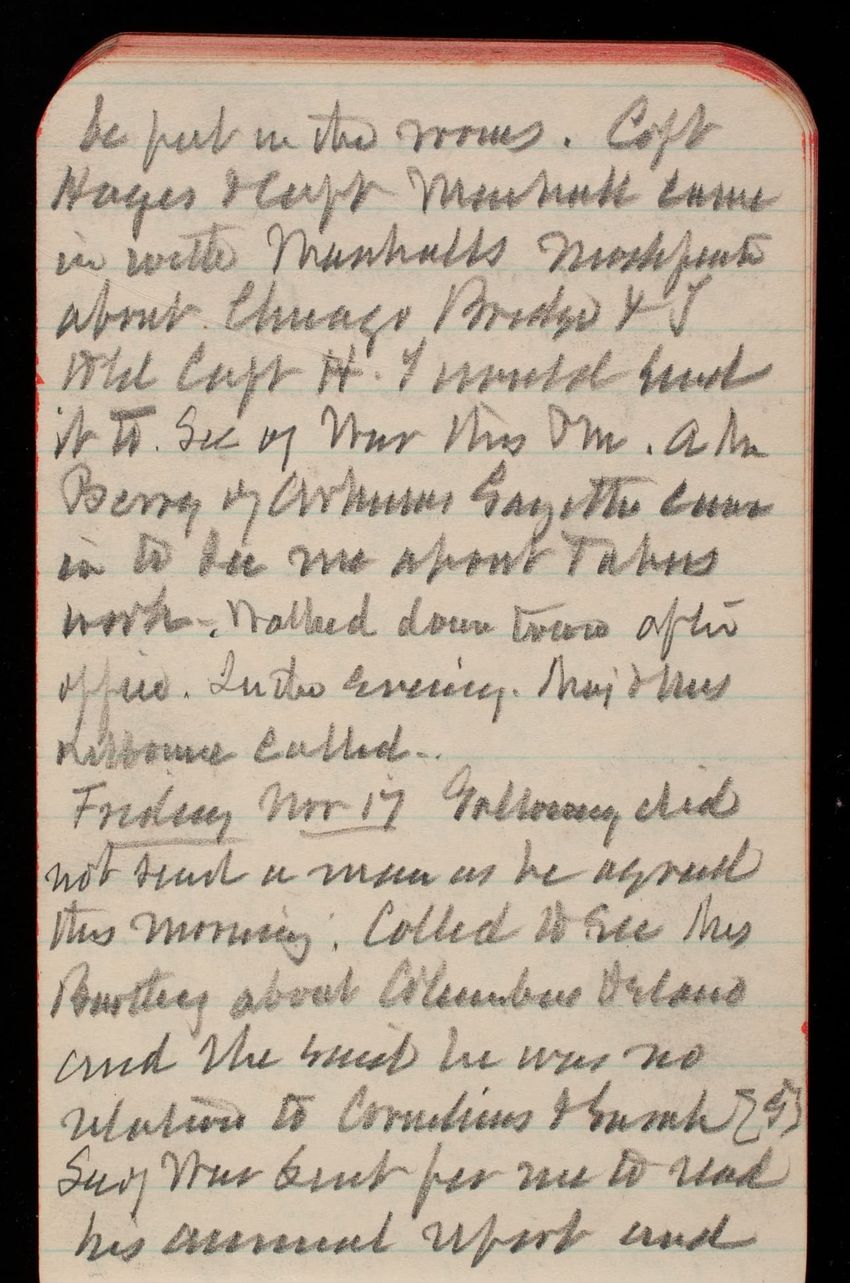 be put in the rooms. Capt
Hayes & Capt Marshall came
in with Marshalls
about Chicago Bridge & I
told Capt H. I would send
it to Sec of War this P.M. A Mr
Berry of Arkansas Gazette came
in to see me about Tabers
work. Walked down town after
office. In the evening Maj & Mrs
called.
Friday Nov 17 Galloway did
not send a man as he agreed
this morning. Called to see Mrs
about Columbus Delano
and she said he was no
relation to Cornelius & Sarah
Sec of War sent for me to read
his annual report and